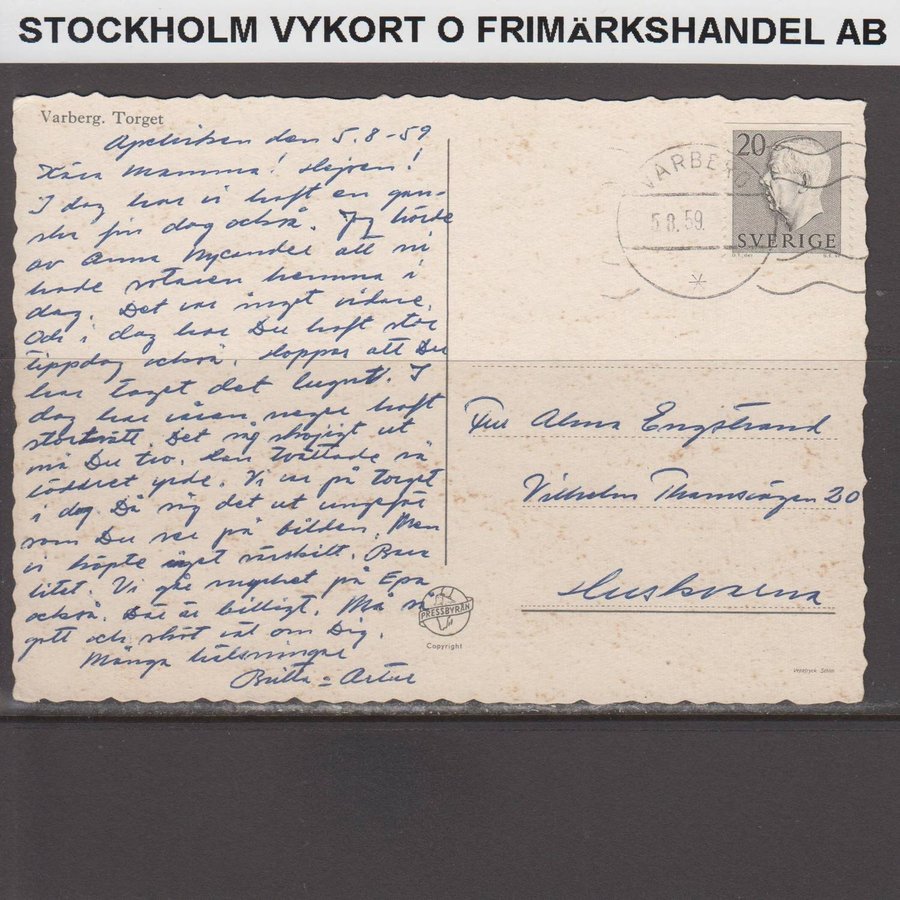 STOCKHOLM VYKORT O FRIMÄRKSHANDEL AB
Varberg. Torget
Apelviken den 5.8-59
Kära Mamma! Hejsan!
I dag har vi haft en gan-
ska fin dag också. Jag hörde
av Anna Nycander att ni
hade rotaren hemma i
dag. Det var inget vidare.
Och i dag har Du haft stor
tippdag också. Hoppas att Du
har taget det lugnt. I
dag har några haft
stortvätt. Det såg skojigt ut
må Du tro. Han tvättade så
löddret yrde. Vi var på torget
i dag. Då såg det ut ungefär
som Du ser på bilden. Men
vi köpte inget särskilt. Bara
litet. Vi går mycket på Epa
också. Där är billigt. Må så
gott och sköt väl om Dig.
Många hälsningar
Britta = Artur
VARBERG
5.8.59.
20
SVERIGE
Fru Alma Engstrand
Vilhelm Thamsvägen 20
Huskvarna
PRESSBYRÅN
Copyright